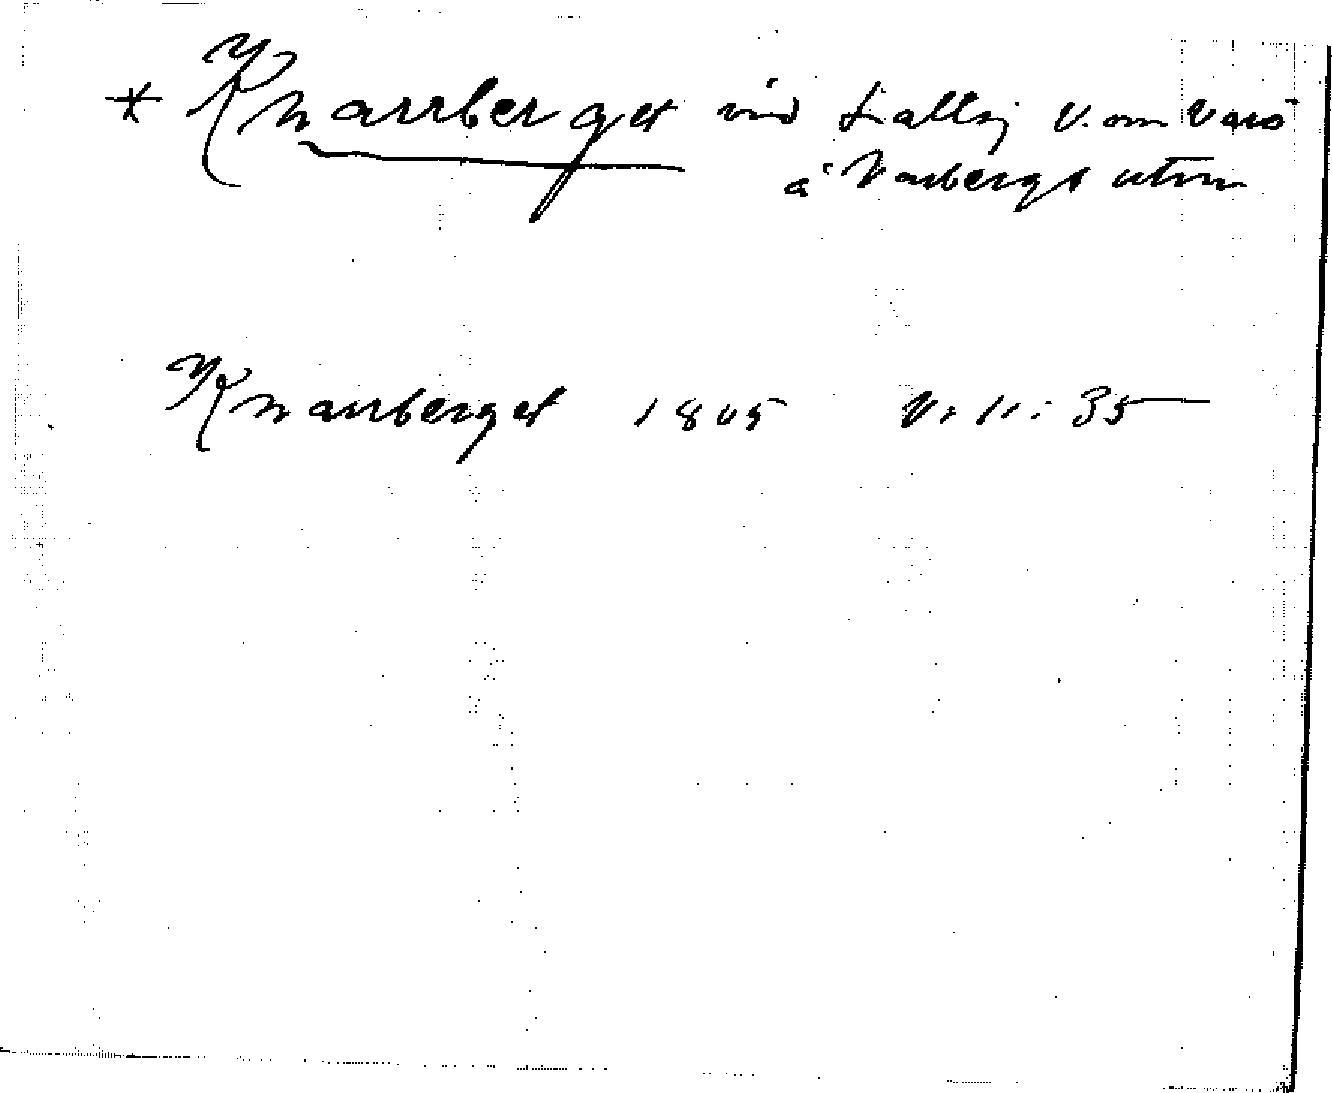 * Knarrberget vid Lallöj V. om Varö
å Varbergs utm
Knarrberget 1805 V: 11: 35